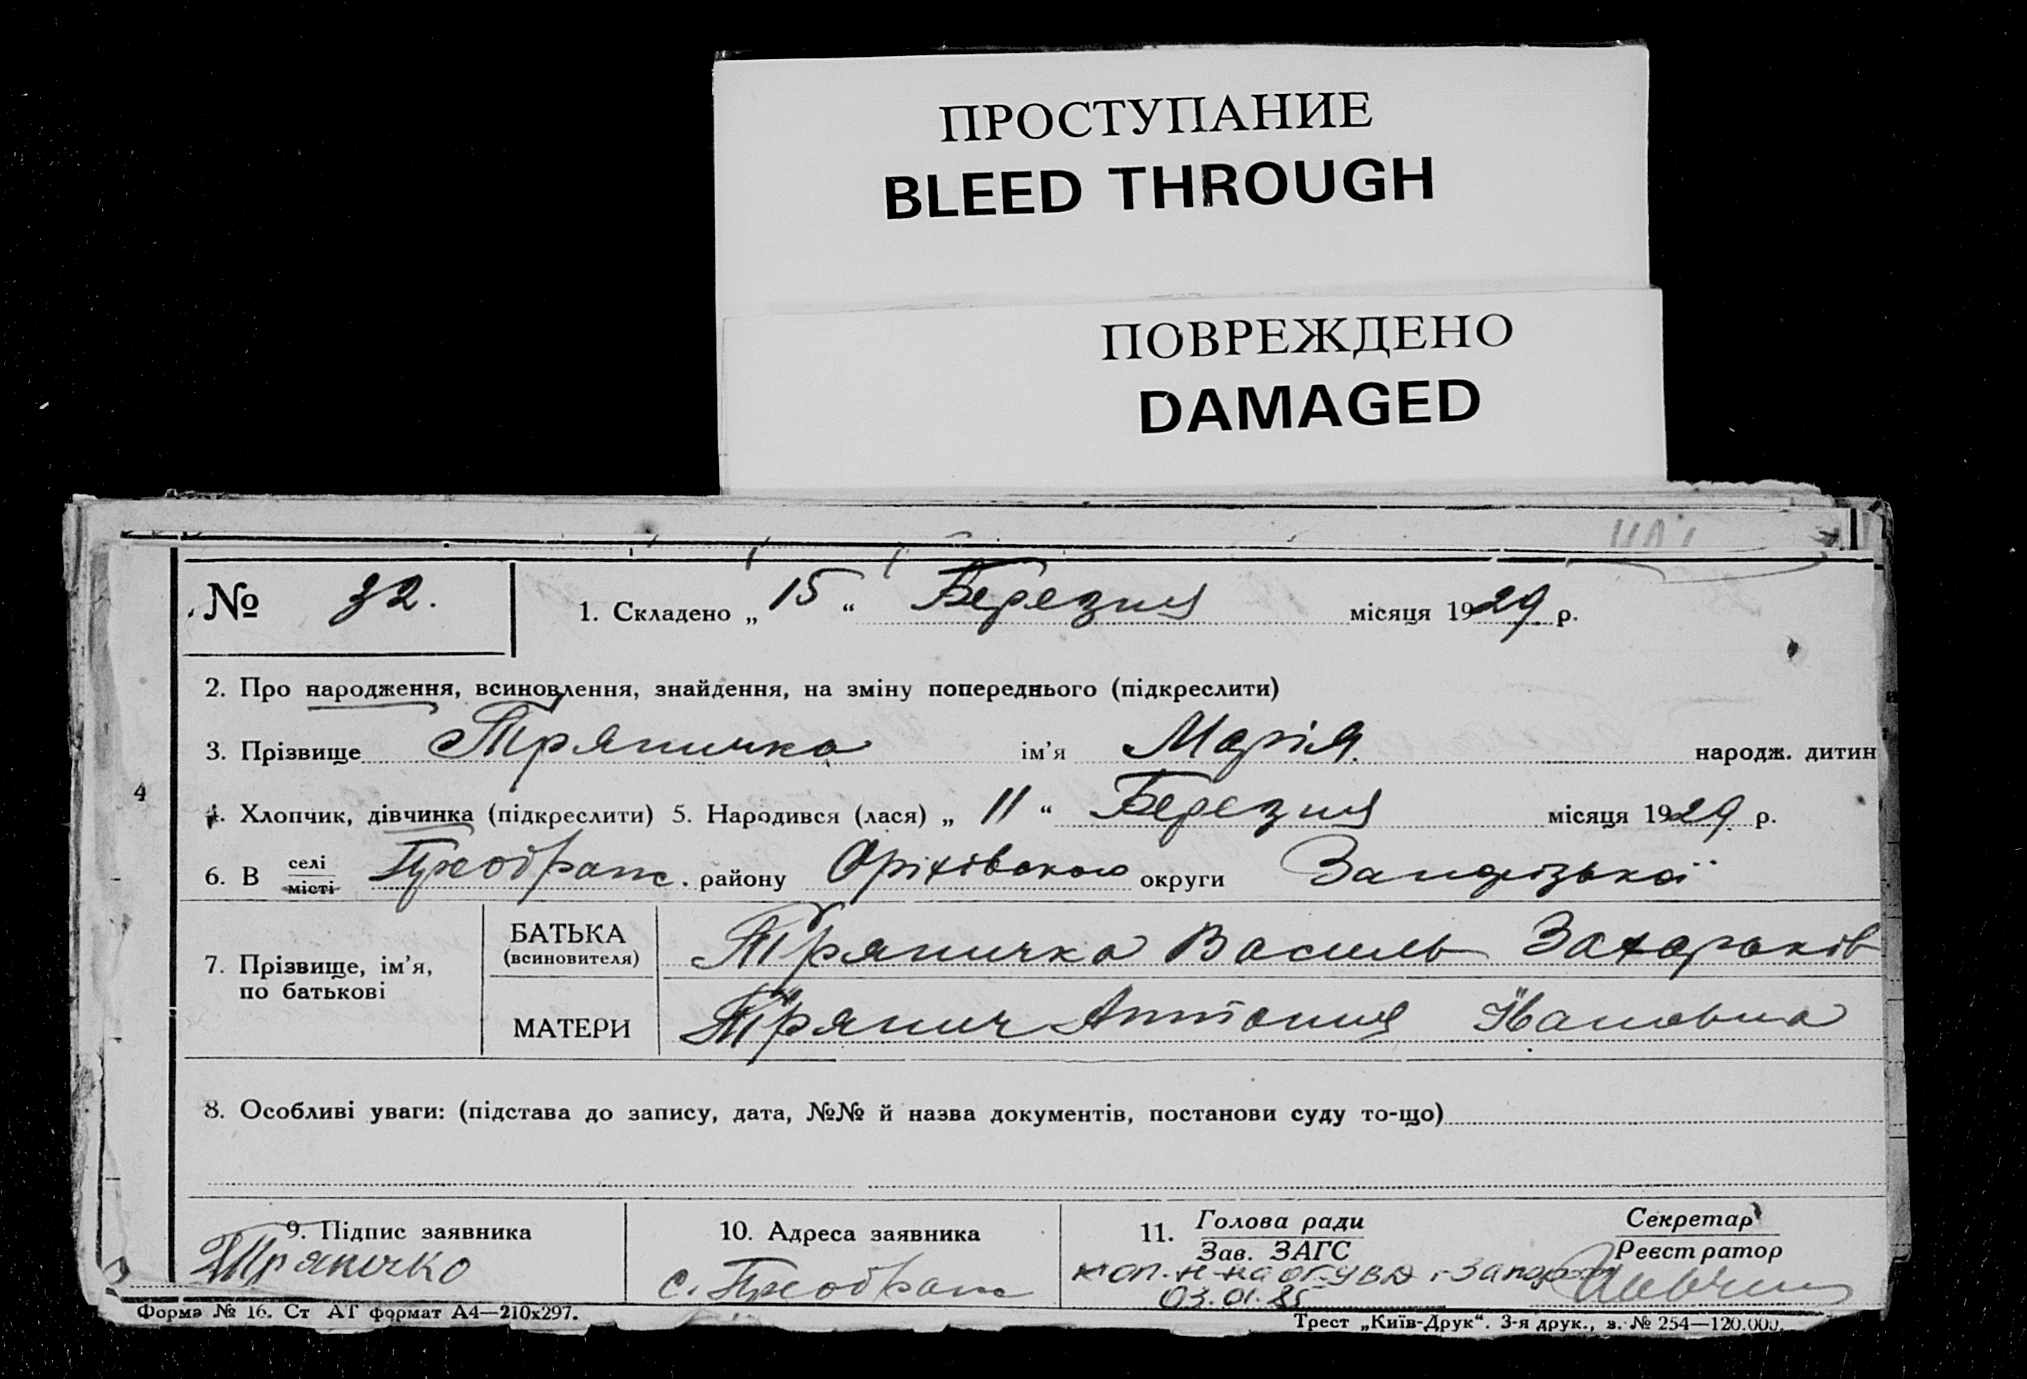 ПРОСТУПАНИЕ
BLEED THROUGH
ПОВРЕЖДЕНО
DAMAGED
№ 32. 1. Складено „ 15 “ Березня місяця 1929 р.
2. Про народження, всиновлення, знайдення, на зміну попереднього (підкреслити)
3. Прізвище Тряпичка ім’я Марія народж. дитин
4
4. Хлопчик, дівчинка (підкреслити) 5. Народився (лася) „ 11 “ Березня місяця 1929 р.
6. В селі місті Преображ. району Оріхівського округи Запорізької
7. Прізвище, ім’я, по батькові
БАТЬКА (всиновителя) Тряпичка Василь Захарьків
МАТЕРИ Тряпич Антонія Івановна
8. Особливі уваги: (підстава до запису, дата, №№ й назва документів, постанови суду то-що)
9. Підпис заявника 10. Адреса заявника 11. Голова ради Зав. ЗАГС Секретар Реєстратор
Тряпичко с. Преображ
03.01.85
Форма № 16. Ст АТ формат А4—210х297. Трест „Київ-Друк“. 3-я друк., з. № 254—120.000.